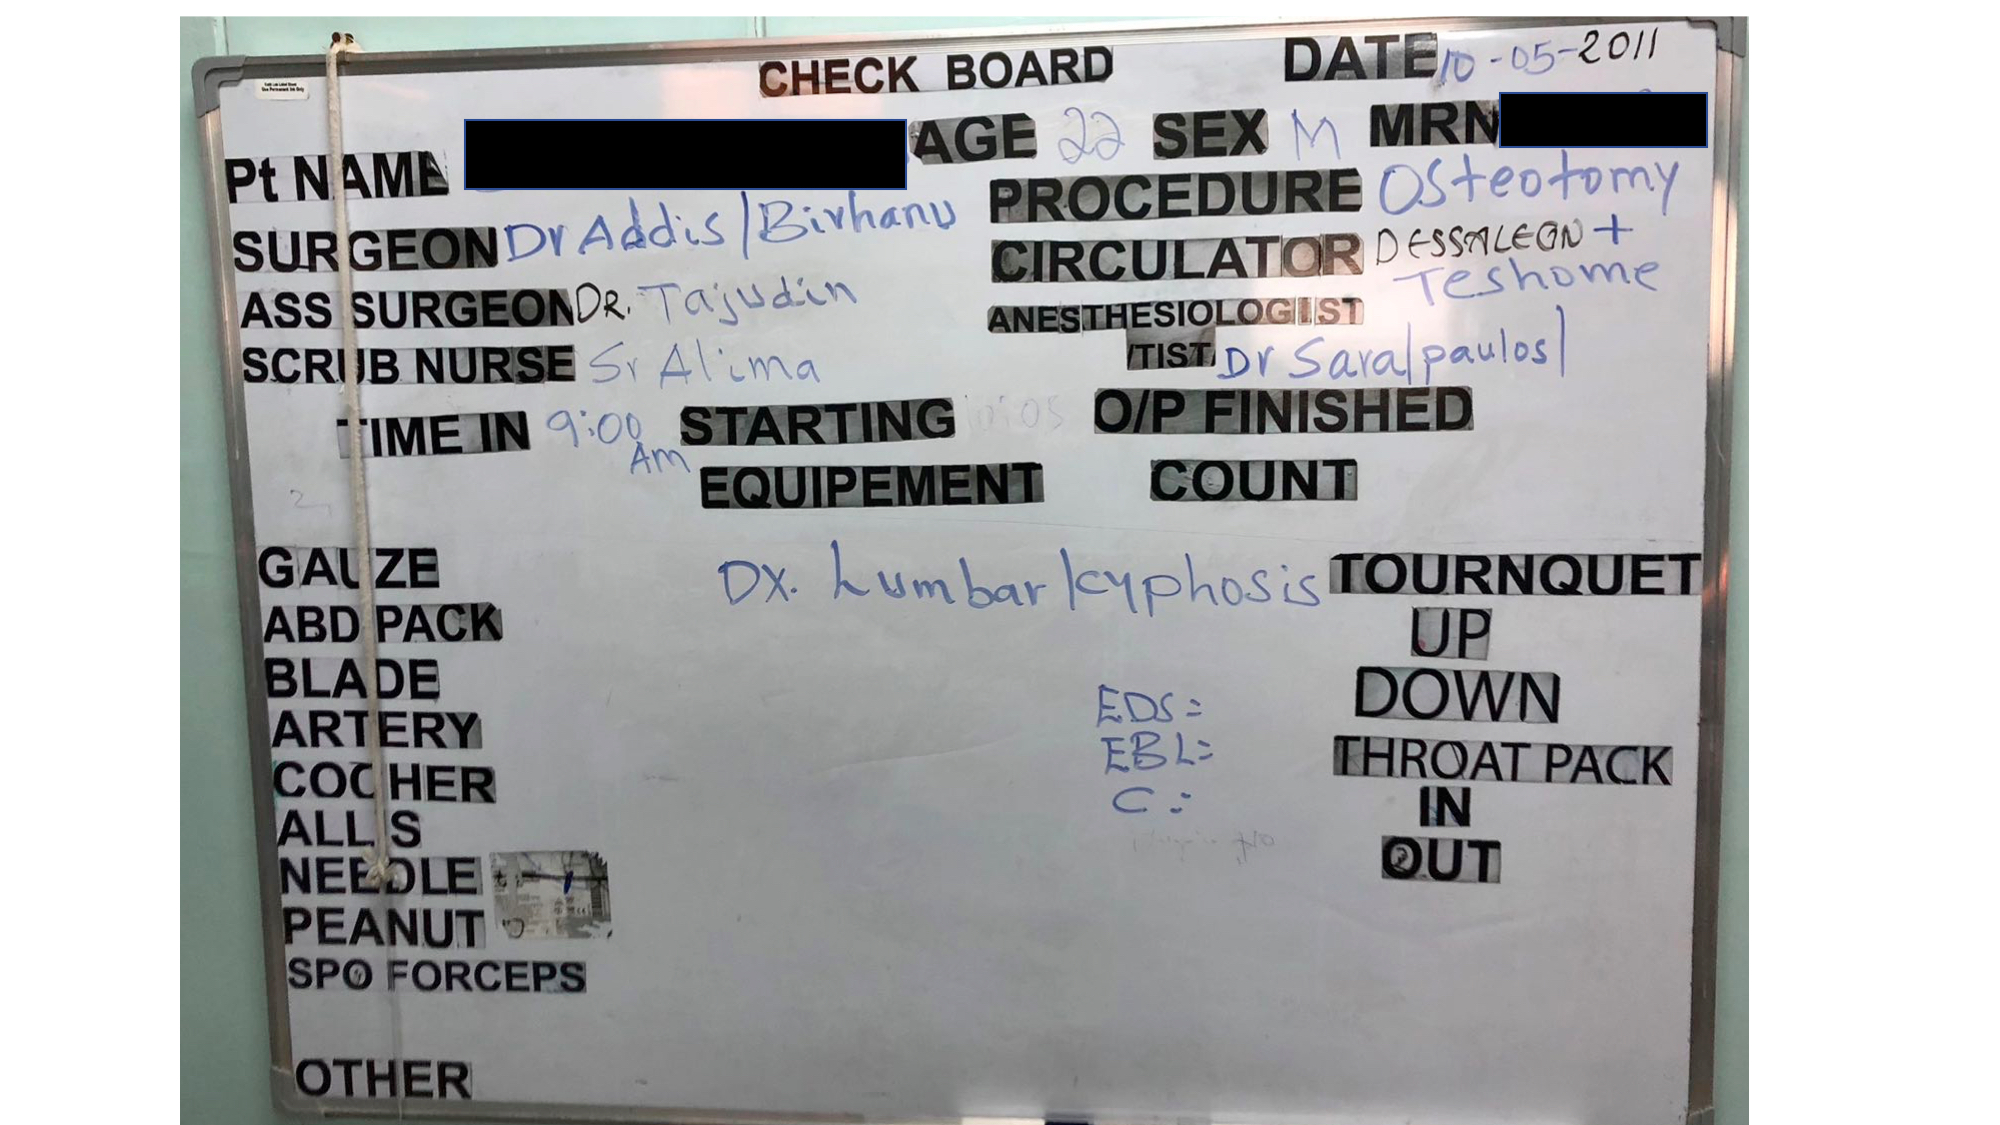 CHECK BOARD DATE 10-05-2011
Pt NAME AGE 22 SEX M MRN
SURGEON Dr Addis/Birhanu PROCEDURE Osteotomy
ASS SURGEON DR. Tajudin CIRCULATOR DESSALEGN + Teshome
SCRUB NURSE Sr Alima ANESTHESIOLOGIST
/TIST Dr Sara/paulos/
TIME IN 9:00 Am STARTING O/P FINISHED
EQUIPEMENT COUNT
GAUZE
Dx. Lumbar kyphosis
TOURNQUET
ABD PACK
UP
BLADE
DOWN
EDS=
ARTERY
EBL=
THROAT PACK
COCHER
C=
IN
ALLIS
OUT
NEEDLE
PEANUT
SPO FORCEPS
OTHER